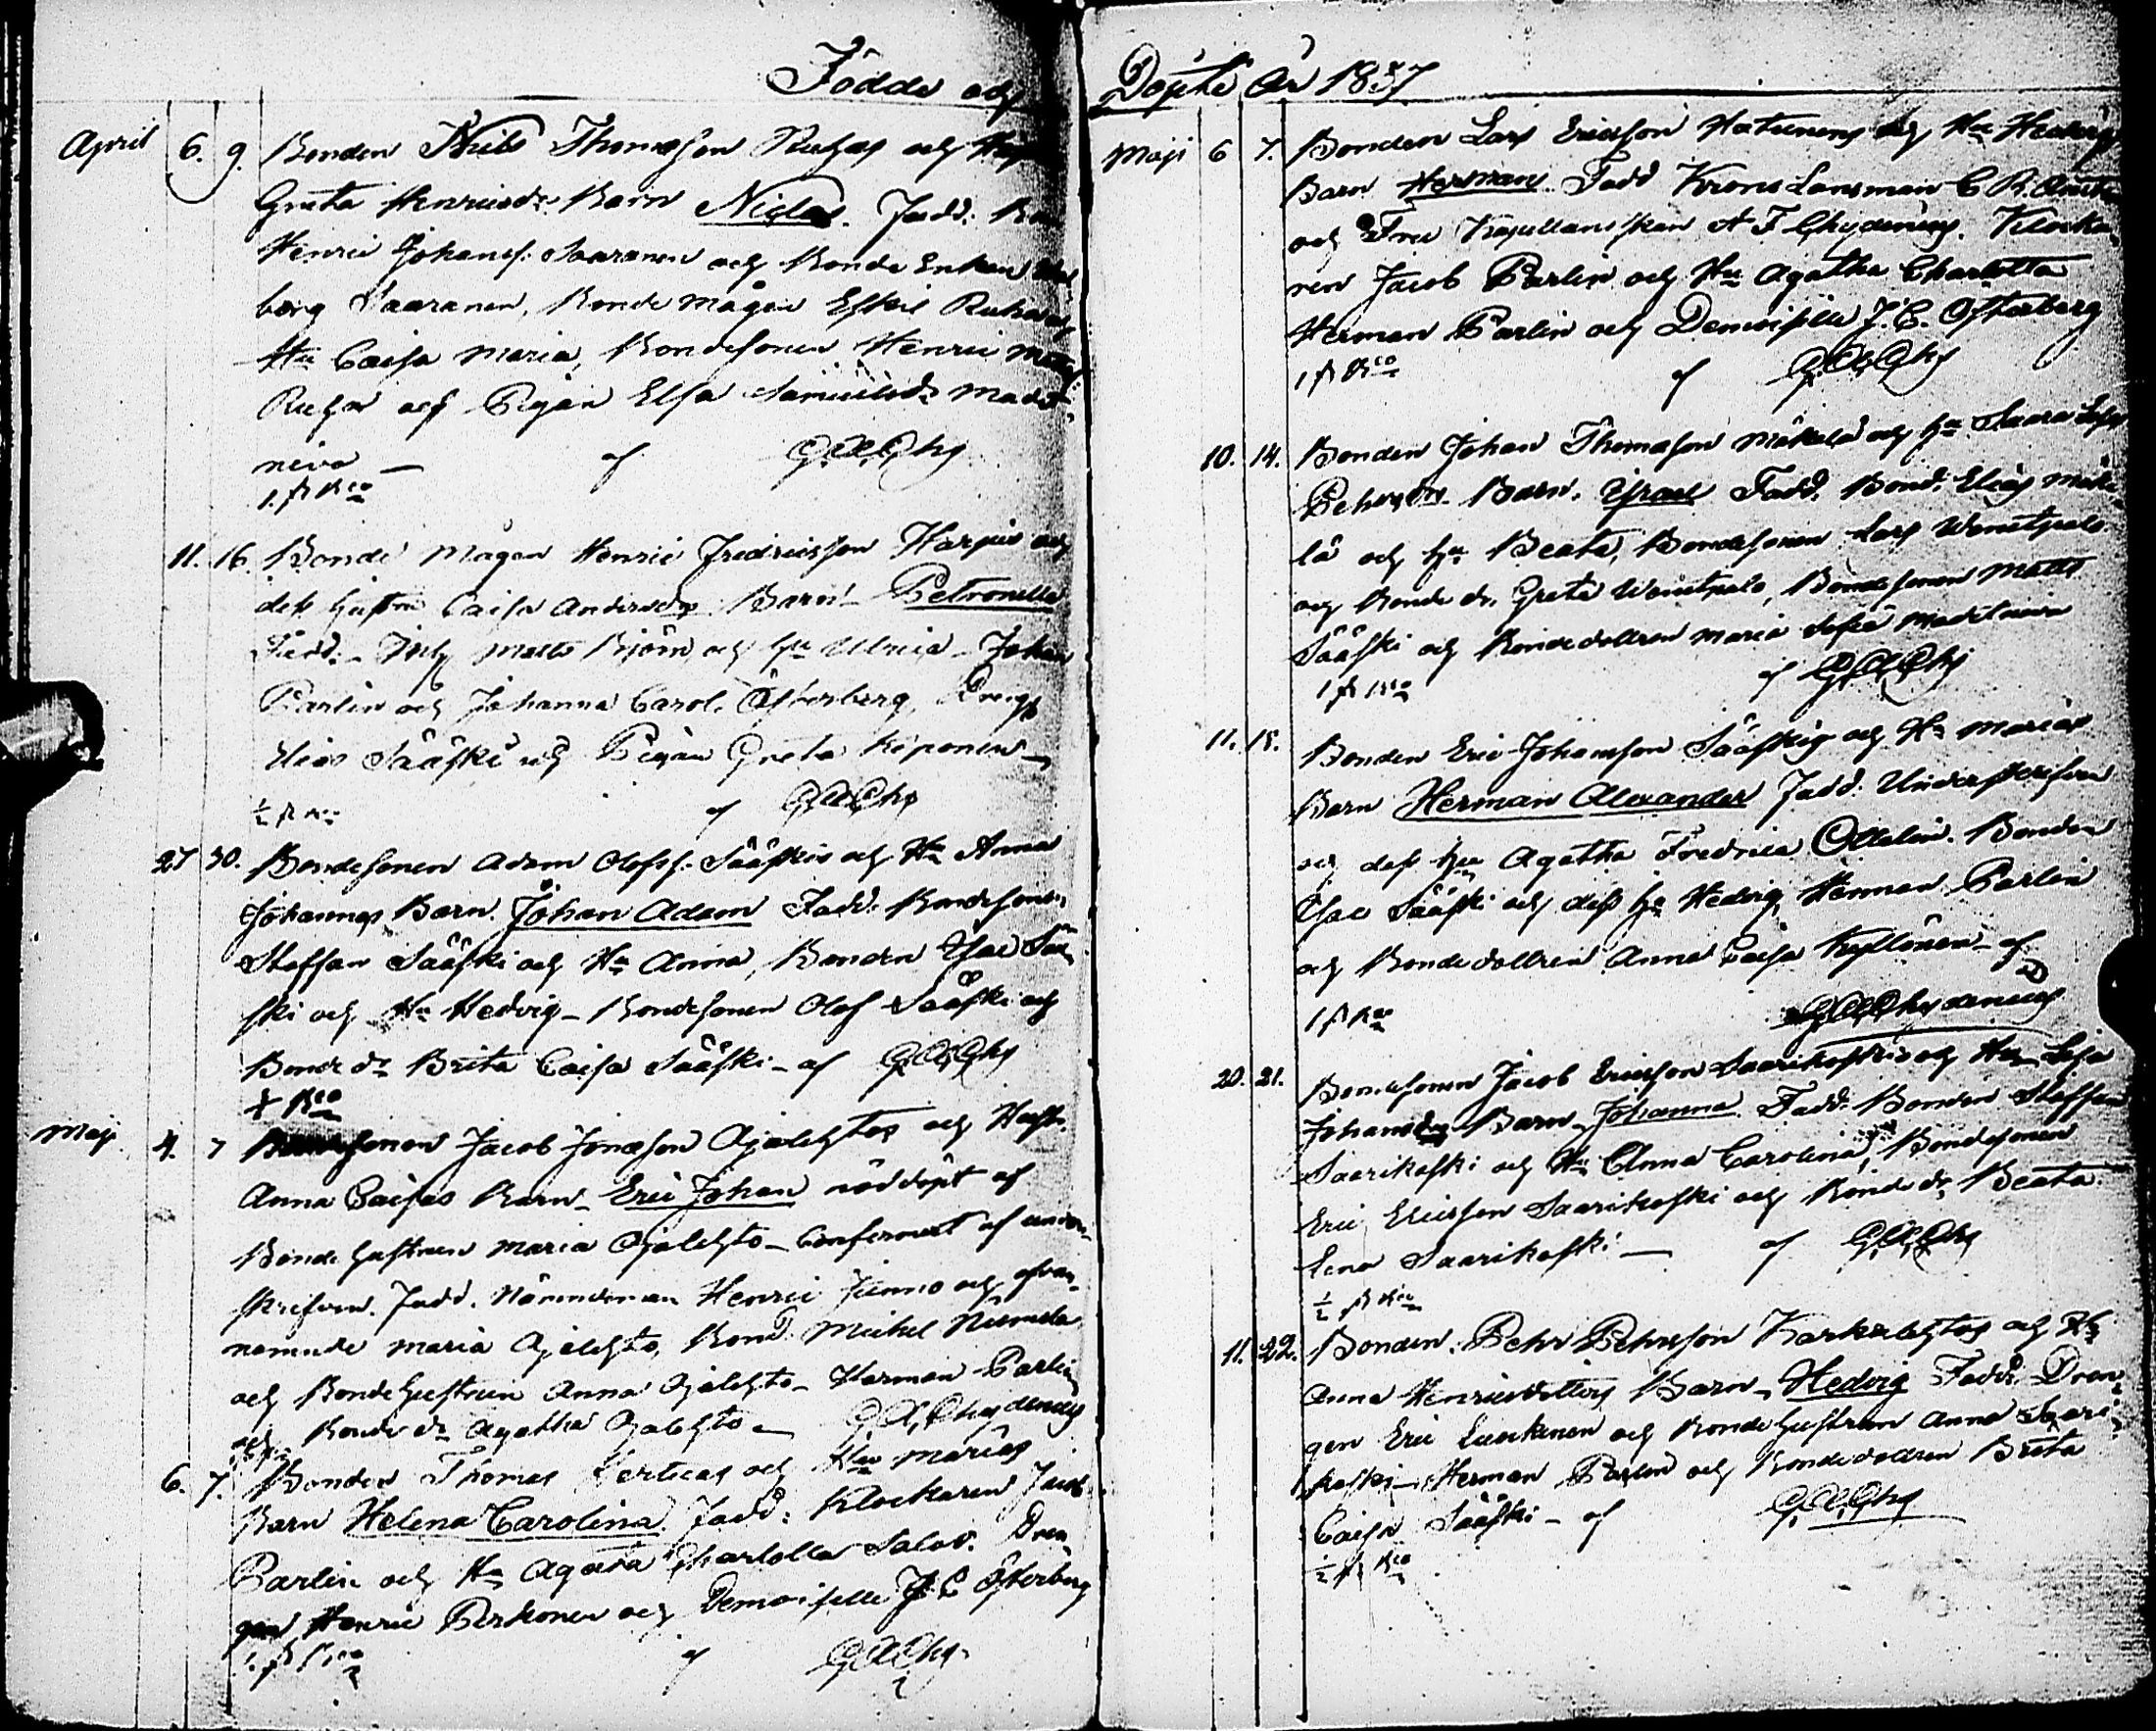 Födde och
April 6. 9. Bonden Nils Thomasson Ruhas och Hust
Greta Henricsdr Barn Niclas. Fadd: Bon
Henric Johanss. Saaranen och Bonde Enkan
borg Saaranen, Bonde mågen Eskil Ruha och
Hu Caisa Maria, Bondesonen Henric Matts
Ruha och Pigan Elsa Samuelsdr Madet-
niva — af G.A.Chy
1. rb Bco
11. 16. Bonde mågen Henric Fredricsson Harjus och
dess hustru Caisa Andersdrs Barn Petronella
Fadd: Inh Matts Björn och hu Ulrica - Johan
Parlin och Johanna Carol. Österberg, Dreng
Elias Sääski och Pigan Greta Reponen —
½ rb Bco af G.A.Chy
27 30. Bondesonen Adam Olofss. Sääskis och Hu Anna
Johannas Barn Johan Adam Fadd: Bondesonen
Staffan Sääski och Hu Anna, Bonden Isac Sää-
ski och Hu Hedvig - Bondesonen Olof Sääski och
Bonde dr Brita Caisa Sääski - af G.A.Chy
Bco
Maji 4. 7 Bondesonen Jacob Jonasson Ojalehtos och Hust.
Anna Caisas Barn - Eric Johan nöddöpt af
Bonde hustrun Maria Ojalehto - Confirmert af under-
skrifven. Fadd. Nämndeman Henric Junno och ofvan-
nemnde Maria Ojalehto, Bond. Michel Niemela
och Bondehustrun Anna Ojalehto - Herman Parlin
och Bonde dr Agatha Ojalehto - G.A.Chydenius
6. 7. Bonden Thomas Herticas och Hu Marias
Barn Helena Carolina. Fadd: Klockaren Jacob
Parlin och Hu Agata Charlotta Salov. Dren-
gen Henric Perkonen och Demoiselle J. C. Österberg
1. rb Bco af G.A.Chy.
Döpte År 1837
Maji 6 7. Bonden Lars Ericsson Hatunens och Hu Hedvigs
Barn Herman Fadd Krono Lansman C. R.
och Fru Kapellanskan A F Chydenius. Klocka-
ren Jacob Parlin och Hu Agatha Charlotta
Herman Parlin och Demoiselle J. C. Österberg
1 rb Bco af G.A.Chy
10. 14. Bonden Johan Thomasson Mäkelä och hu Saara Lisa
Pehrsdrs Barn. Israel Fadd. Bond: Elias Mäke-
lä och hu Beata, Bondesonen Lars Wenetpalo
och Bonde dr. Greta Wenetpalo, Bondesonen Matts
Sääski och Bondedottren Maria Sofia Madetniva
1 rb Bco af G.A.Chy
11. 15. Bonden Eric Johansson Sääskis och Hu Marias
Barn Herman Alexander Fadd. Underskrifven
och dess hu Agatha Fredrica Ottelin. Bonden
Isac Sääski och dess hu Hedvig, Herman Parlin
och Bondedottren Anna Caisa Kyllönen - af
1 rb Bco G.A.Chydenius
20. 21. Bondesonen Jacob Ericsson Saarikoskis och Hu Lisa
Johansdrs Barn - Johanna Fadd. Bonden Staffan
Saarikoski och Hu Anna Carolina, Bondesonen
Eric Ericsson Saarikoski och Bonde dr. Beata
Lena Saarikoski — af G.A.Chy
½ rb Bco
11. 22. Bonden Pehr Pehrsson Karhulehtos och Hu
Anna Henricsdotters Barn - Hedvig Fadd. Dren-
gen Eric Luukinen och Bondehustrun Anna Saari-
koski - Herman Parlin och Bondedottren Brita
Caisa Sääski - af G.A.Chy
½ rb Bco